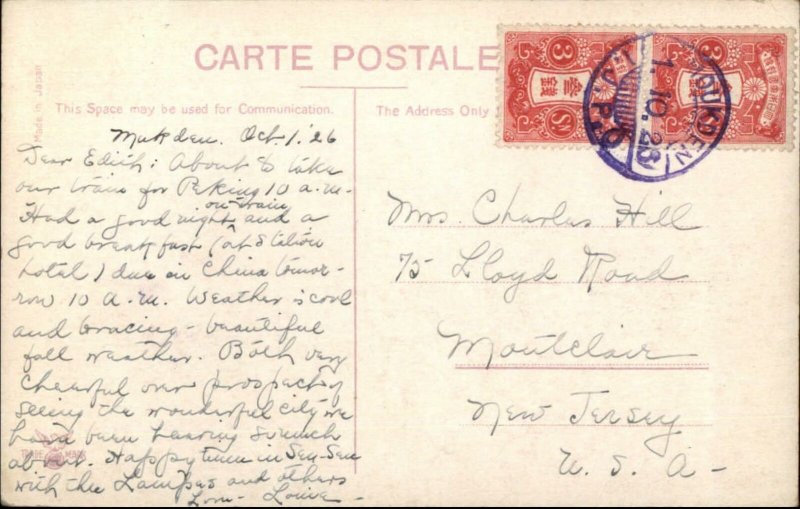 CARTE POSTALE
Made in Japan
This Space may be used for Communication.
The Address Only
Mukden. Oct. 1. '26
Dear Edith: About to take
our train for Peking 10 a.m.
on train
Had a good night and a
good breakfast (at Station
hotel) due in China tomor-
row 10 A.M. Weather is cool
and bracing - beautiful
fall weather. Both very
cheerful over prospect of
seeing the wonderful city we
have been hearing so much
about. Happy time in
with the and others
Love - Louise -
TRADE MARK
Mrs. Charles Hill
75 Lloyd Road
Montclair
New Jersey
U. S. A -
3
参
銭
3
Sn
MUKDEN
1. 10. 26
I.J.P.O